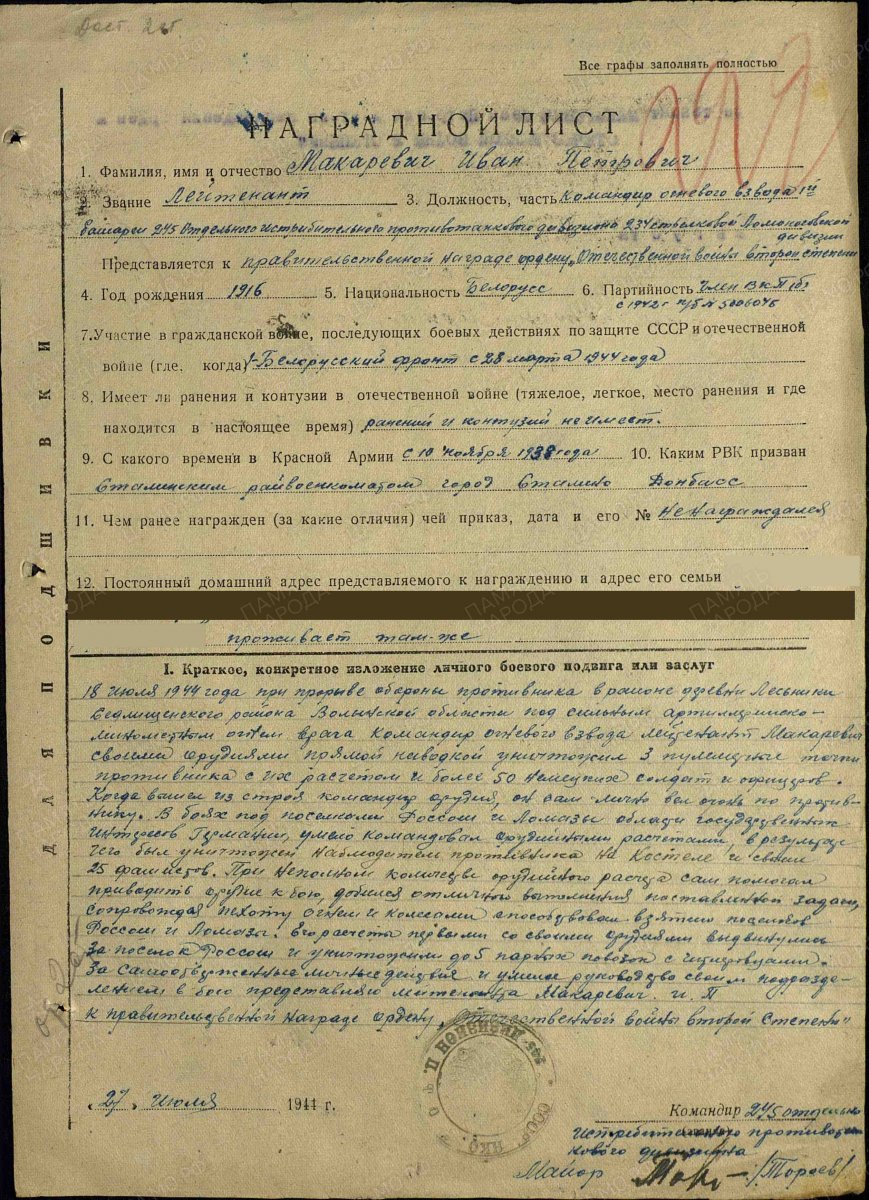 Дост. 2 ст
Все графы заполнять полностью
НАГРАДНОЙ ЛИСТ
1. Фамилия, имя и отчество Макаревич Иван Петрович
2. Звание Лейтенант 3. Должность, часть Командир огневого взвода 1й
батареи 245 Отдельного Истребительного противотанкового дивизиона 234 стрелковой Ломоносовской
дивизии
Представляется к правительственной награде ордену „Отечественной войны второй степени
4. Год рождения 1916 5. Национальность Белорусс 6. Партийность Член ВКП(б)
с 1942г п/б №
7. Участие в гражданской войне, последующих боевых действиях по защите СССР и отечественной
войне (где. когда) 1-Белорусский фронт с 28 марта 1944 года
8. Имеет ли ранения и контузии в отечественной войне (тяжелое, легкое, место ранения и где
находится в настоящее время) ранений и контузий не имеет.
9. С какого времени в Красной Армии с 10 ноября 1938 года 10. Каким РВК призван
Сталинским райвоенкоматом город Сталино Донбасс
11. Чем ранее награжден (за какие отличия) чей приказ, дата и его № Не награждался
12. Постоянный домашний адрес представляемого к награждению и адрес его семьи
проживает там-же
I. Краткое, конкретное изложение личного боевого подвига или заслуг
18 Июля 1944 года при прорыве обороны противника в районе деревни Лесьники
Седлищенского района Волынской области под сильным артиллерииско-
минометным огнем врага командир огневого взвода лейтенант Макаревич
своими орудиями прямой наводкой уничтожил 3 пулеметные точки
противника с их расчетом и более 50 немецких солдат и офицеров.
Когда вышел из строя командир орудия, он сам лично вел огонь по против-
нику. В боях под поселками Россош и Ломазы области государственных
интересов Германии, умело командовал орудийными расчетами, в результате
чего был уничтожен наблюдатель противника на костеле и свыше
25 фашистов. При неполном количестве орудийного расчета сам помогал
приводить орудие к бою, добился отличного выполнения поставленной задачи,
сопровождая пехоту огнем и колесами способствовал взятию поселков
Россош и Ломазы. Его расчеты первыми со своими орудиями выдвинулись
за поселок Россош и уничтожили до 5 парных повозок с
За самоотверженные личные действия и умелое руководство своим подразде-
лением в бою представляю лейтенанта Макаревич И. П
к правительственной награде ордену „Отечественной войны второй степени"
„27" Июля 1944 г.
Командир 245 отдельного
Истребительного противотан-
кового дивизиона
Майор /Тораев/
ДЛЯ ПОДШИВКИ